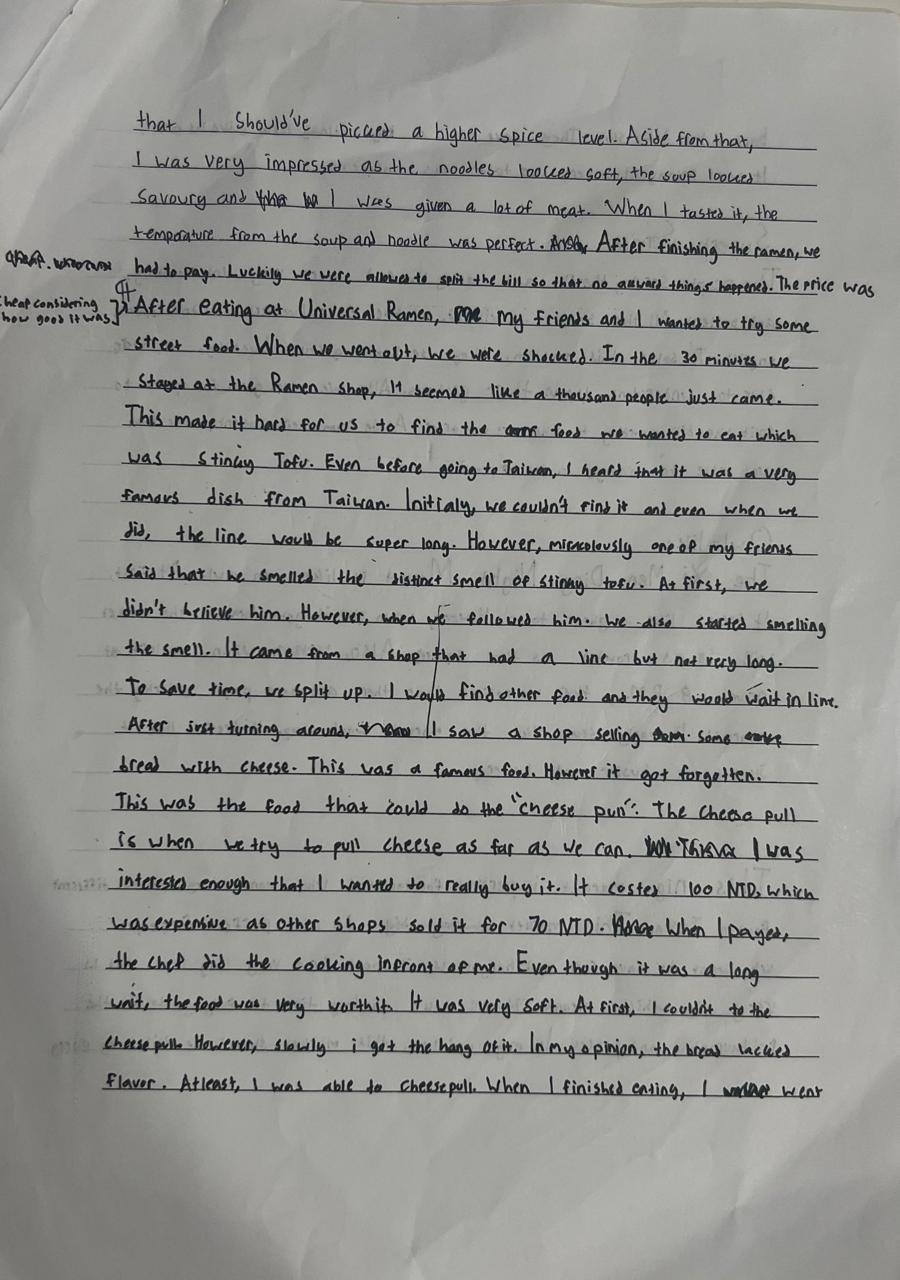 that I should've picked a higher spice level. Aside from that,
I was very impressed as the noodles looked soft, the soup looked
savoury and I was given a lot of meat. When I tasted it, the
temperature from the soup and noodle was perfect. After finishing the ramen, we
had to pay. Luckily we were allowed to split the bill so that no akward things happened. The price was
cheap considering
how good it was.
After eating at Universal Ramen, my friends and I wanted to try some
street food. When we went out, we were shocked. In the 30 minutes we
stayed at the Ramen shop, It seemed like a thousand people just came.
This made it hard for us to find the food we wanted to eat which
was Stinky Tofu. Even before going to Taiwan, I heard that it was a very
famous dish from Taiwan. Initialy, we couldn't find it and even when we
did, the line would be super long. However, miracolously one of my friends
said that he smelled the distinct smell of stinky tofu. At first, we
didn't believe him. However, when we followed him. We also started smelling
the smell. It came from a shop that had a line but not very long.
To save time, we split up. I would find other food and they would wait in line.
After just turning around, I saw a shop selling some
bread with cheese. This was a famous food. However it got forgotten.
This was the food that could do the "cheese pull". The cheese pull
is when we try to pull cheese as far as we can. I was
interested enough that I wanted to really buy it. It costed 100 NTD, which
was expensive as other shops sold it for 70 NTD. When I payed,
the chef did the cooking infront of me. Even though it was a long
wait, the food was very worth it. It was very soft. At first, I couldn't to the
cheese pull. However, slowly i got the hang of it. In my opinion, the bread lacked
flavor. Atleast, I was able to cheesepull. When I finished eating, I went